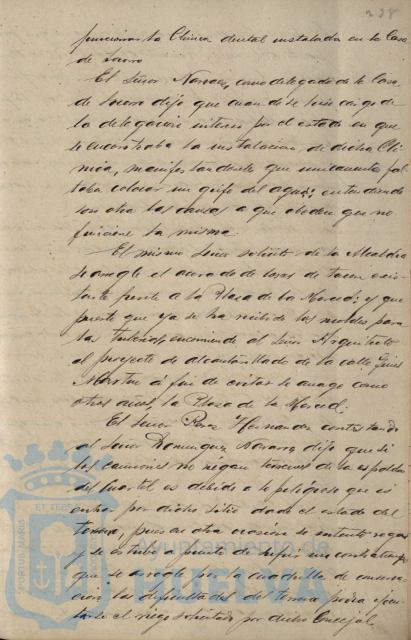 238
funcionar la Clínica dental instalada en la Casa
de Socorro
El Señor Narvaez, como delegado de la Casa
de Socorro dijo que cuando se hizo cargo de
la delegación intereso por el estado en que
se encontraba la instalación de dicha Clí
nica, manifestandosele que unicamente fal
taba colocar un grifo del agua; entendiendo
son otras las causas a que obedece que no
funcione la misma.
El mismo Señor solicitó de la Alcaldía
se arregle el acerado de losas de exis
tente frente a la Plaza de la Merced; y que
puesto que ya se ha recibido los moldes para
las tuberias, encomiende al Señor Arquitecto
el proyecto de alcantarillado de la calle Gines
Martin á fin de evitar se anegue como
otros años, la Plaza de la Merced.
El Señor Perez Hernandez contestando
al Señor Dominguez Navarro dijo que si
los camiones no riegan de la espalda
del Cuartel es debido a lo peligroso que es
entrar por dicho sitio dado el estado del
terreno, pues en otra ocasión se intentó regar
y se estuvo a punto de
que se arregle por la cuadrilla de conserva
cion las del terreno para ejecu
tarse el riego solicitado por dicho Concejal.
PORTUS MARIS
ET TERR
Ayuntamiento de
HUELVA